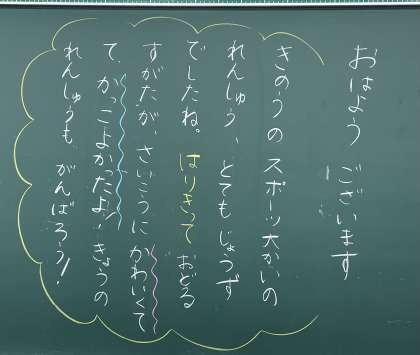 おはよう ございます
きのうの スポーツ大かいの
れんしゅう、とても じょうず
でしたね。はりきって おどる
すがたが、さいこうに かわいくて
て、かっこよかったよ!きょうの
れんしゅうも がんばろう!!